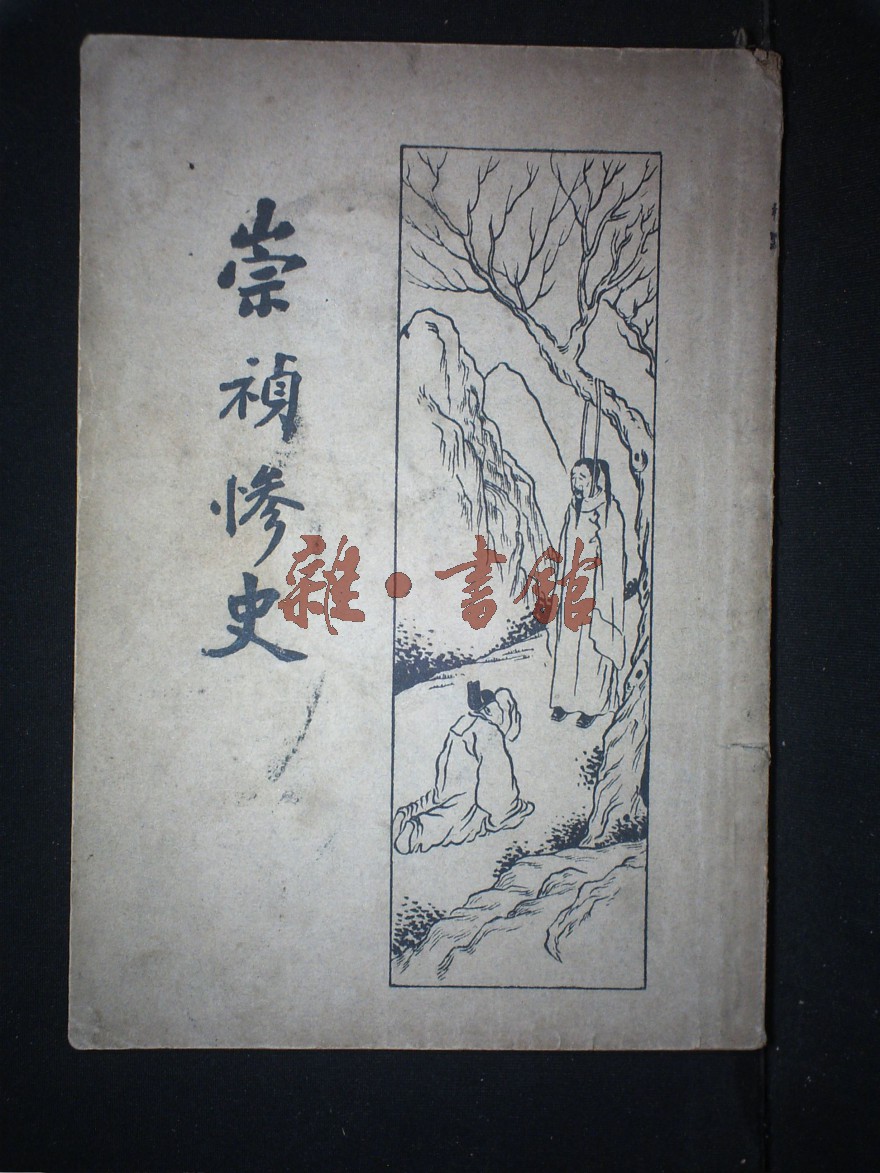 崇禎慘史
雜·書館